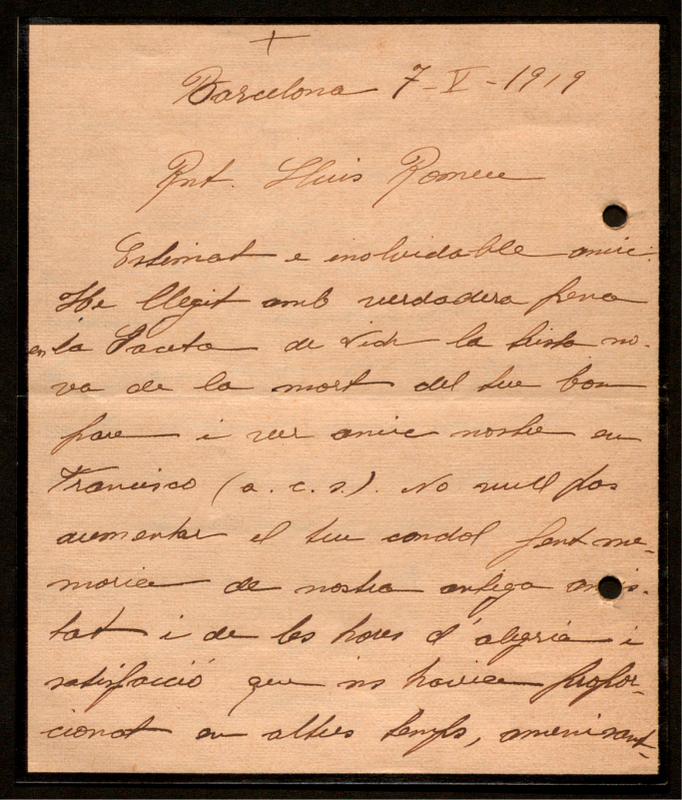 +
Barcelona 7-V-1919
Rnt. Lluis Romeu
Estimat e inolvidable amic:
He llegit amb verdadera pena
en la Gaceta de Vich la trista no-
va de la mort del teu bon
pare i ver amic nostre en
Francisco (a. c. s.). No vull pas
aumentar el teu condol fent me-
moria de nostra antiga amis-
tat i de les hores d'alegria i
satisfacció que ns havia propor-
cionat en altres temps, amenisant-